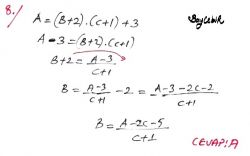 8./ A=(B+2).(c+1)+3
BayLebiR
A-3=(B+2).(c+1)
B+2=\frac{A-3}{c+1}
B=\frac{A-3}{c+1}-2=\frac{A-3-2c-2}{c+1}
B=\frac{A-2c-5}{c+1}
CEVAP:A